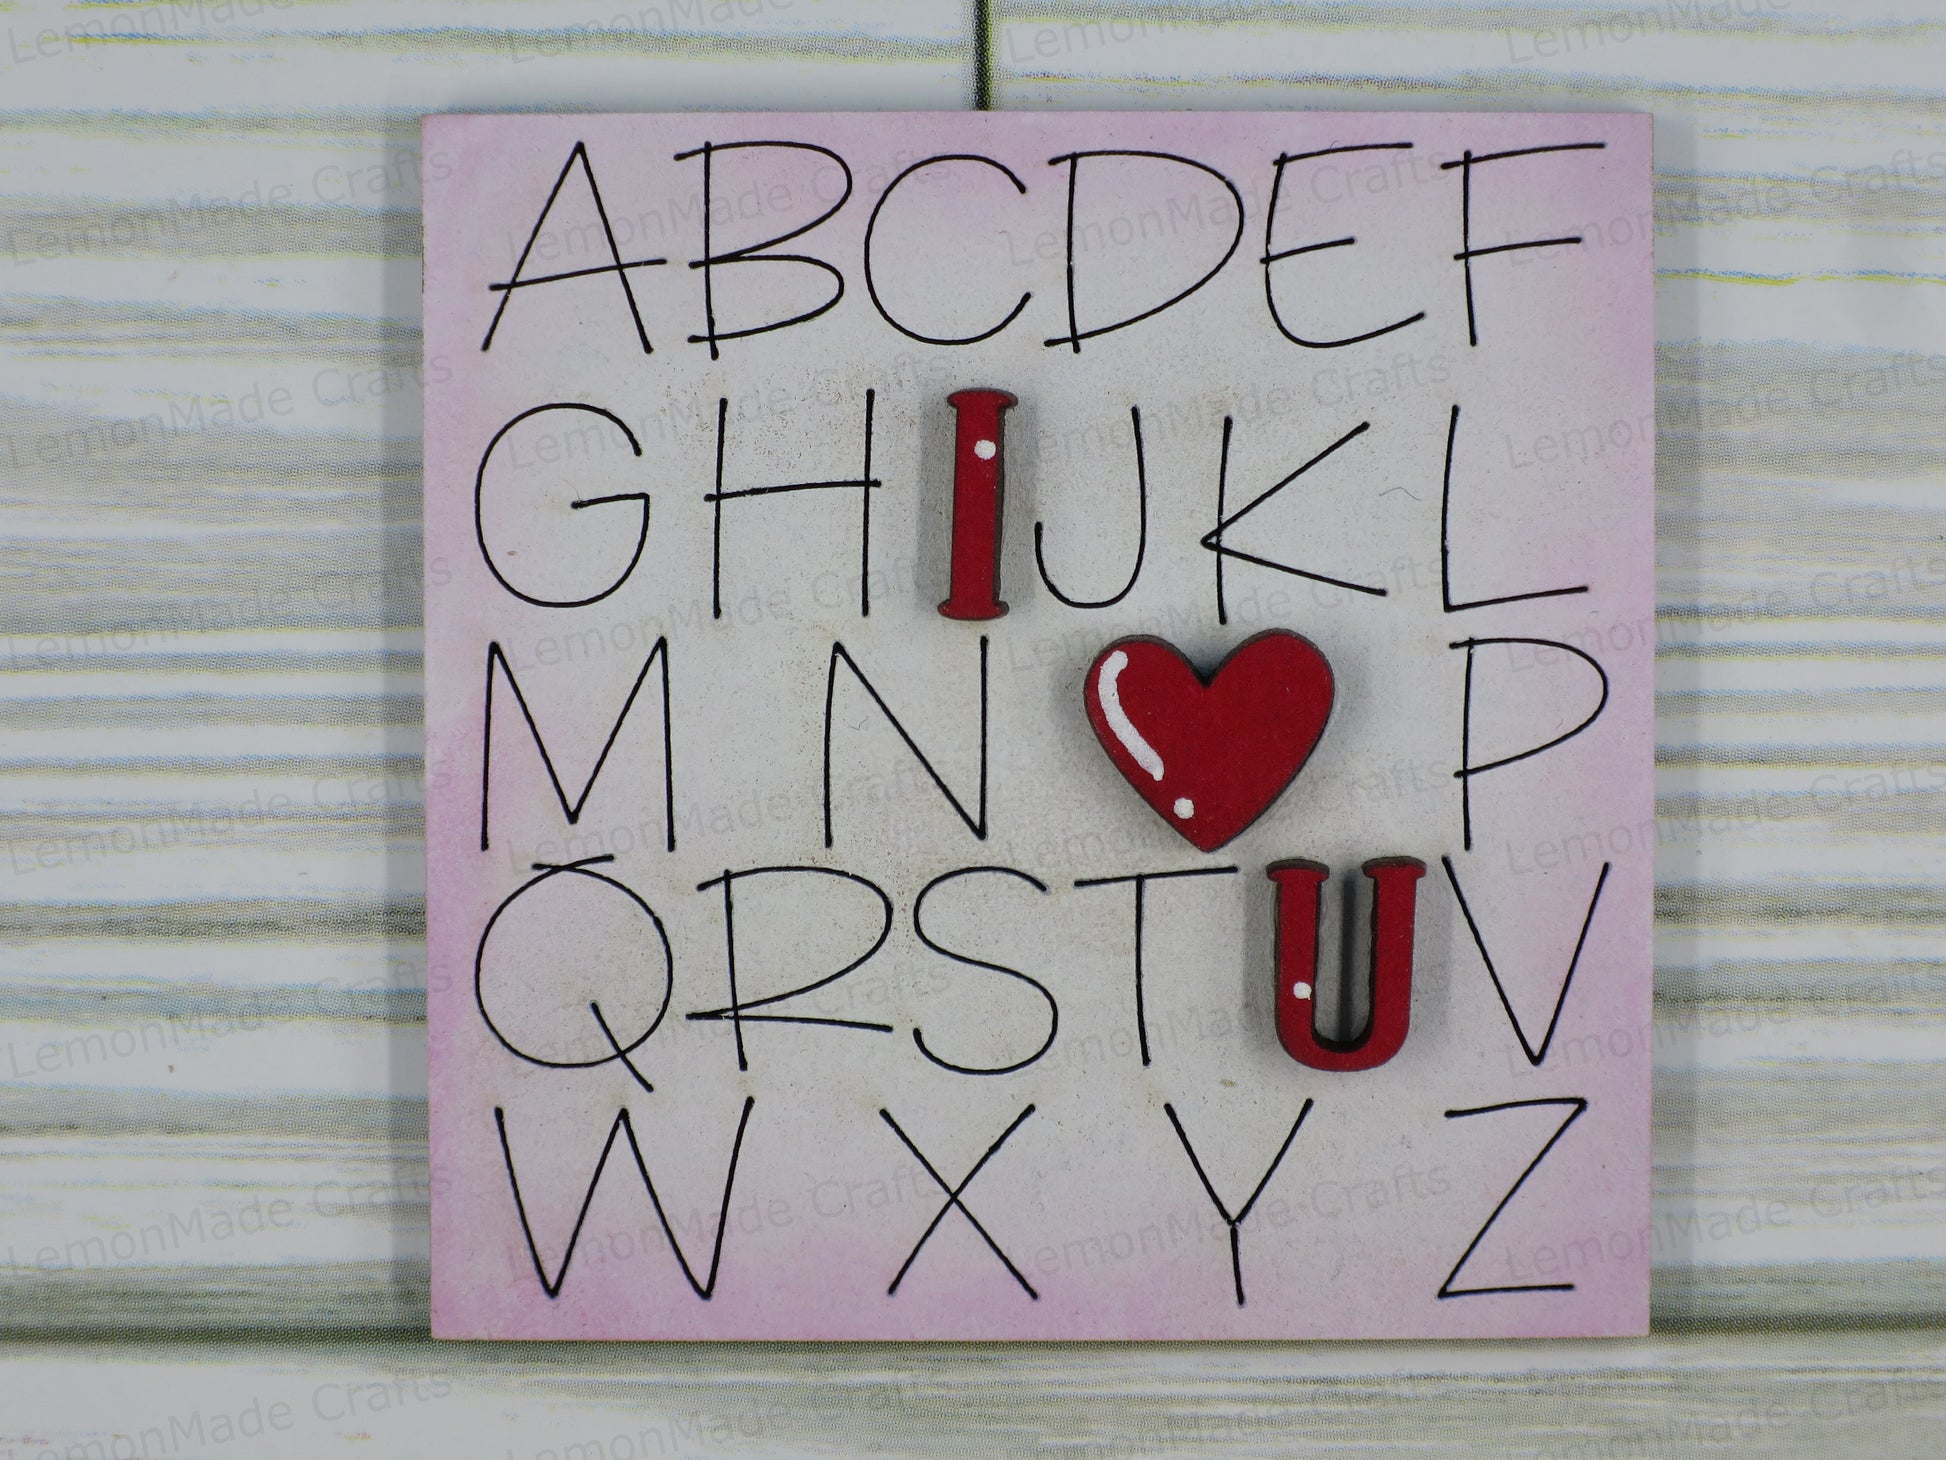 ABCDEF
GHIJKL
MN❤P
QRSTUV
WXYZ
LemonMade Crafts